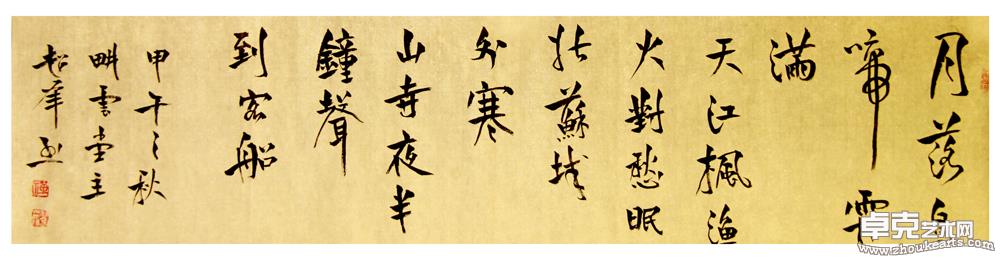 月落烏
啼霜
滿
天江楓漁
火對愁眠
姑蘇城
外寒
山寺夜半
鐘聲
到客船
甲午之秋
畊雲堂主
卓克艺术网
www.zhoukearts.com